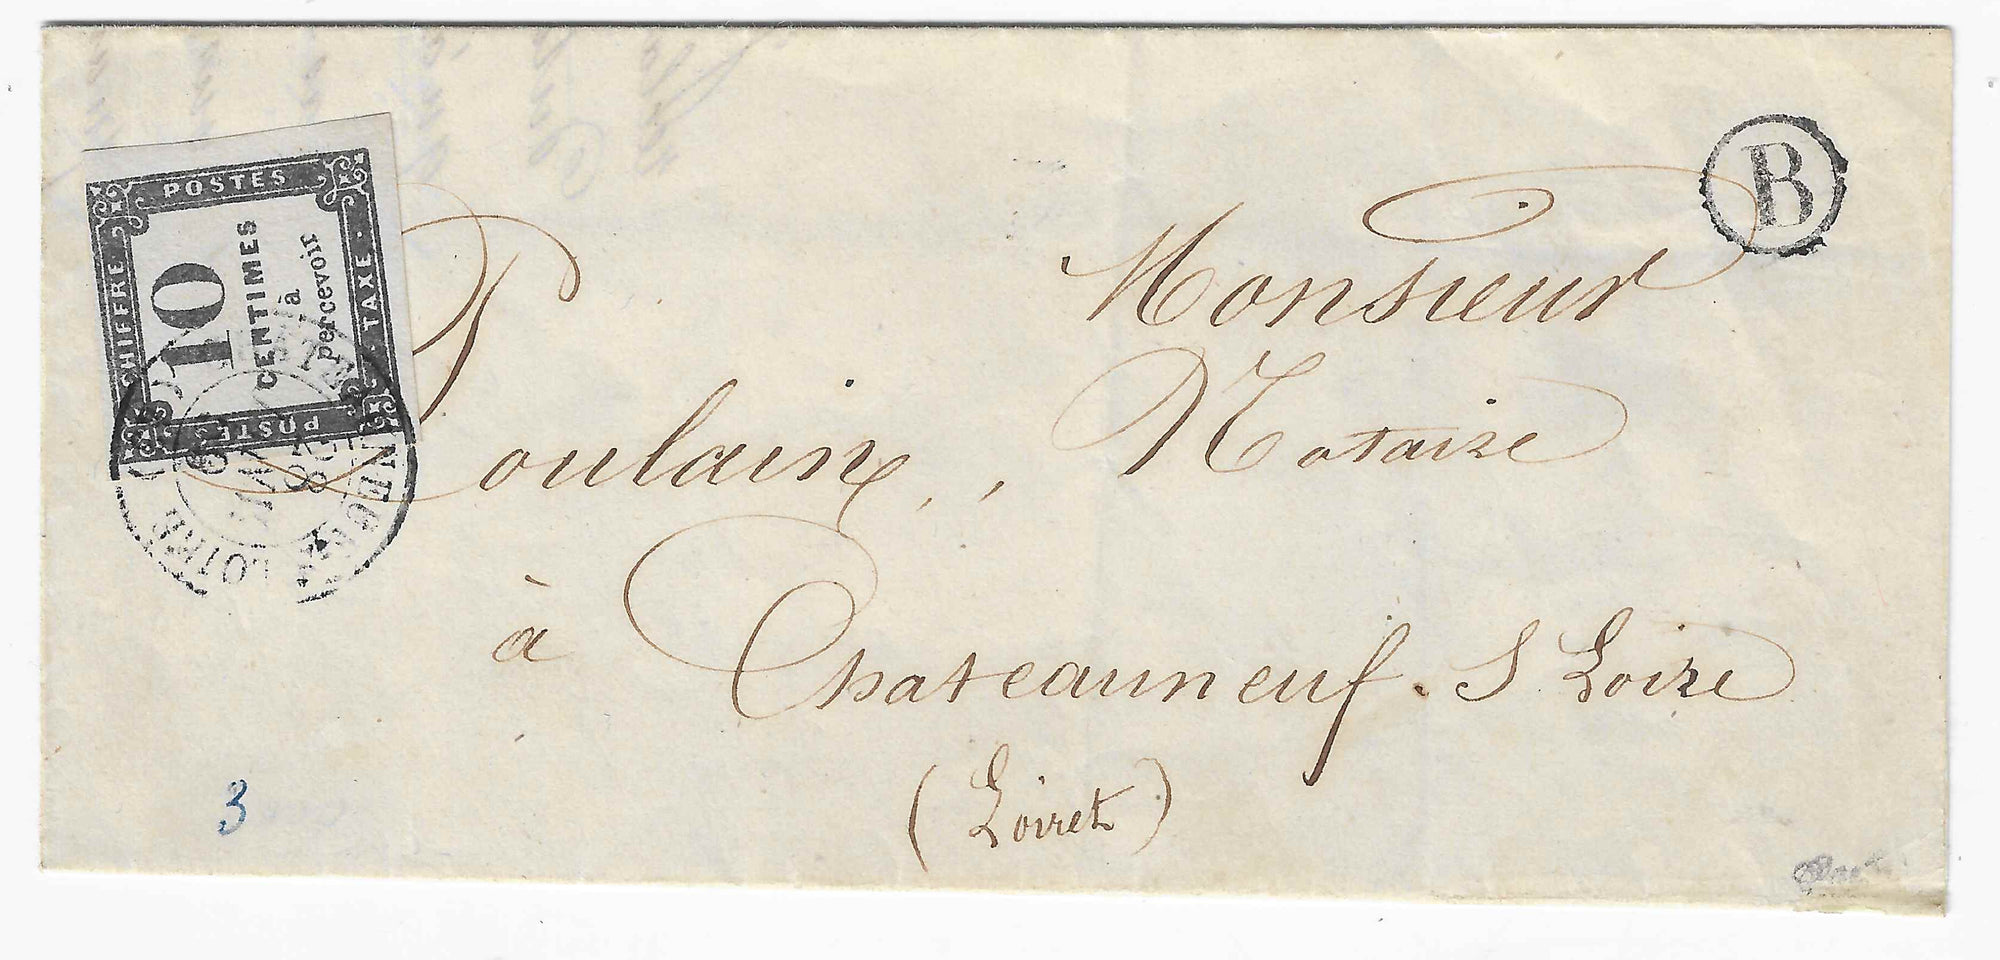 B
POSTES
CHIFFRE
TAXE
10
CENTIMES
à
percevoir
POSTES
Monsieur
Poulain, Notaire
à Chateauneuf. S Loire
(Loiret)
3